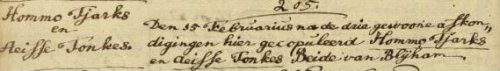 205.
Hommo Tjarks
en
Aeisse Fonkes.
Den 15 Februarius na de drie gewoone afkon„
digingen hier gecopuleerd Hommo Tjarks
en Aeisse Fonkes Beide van Blijham